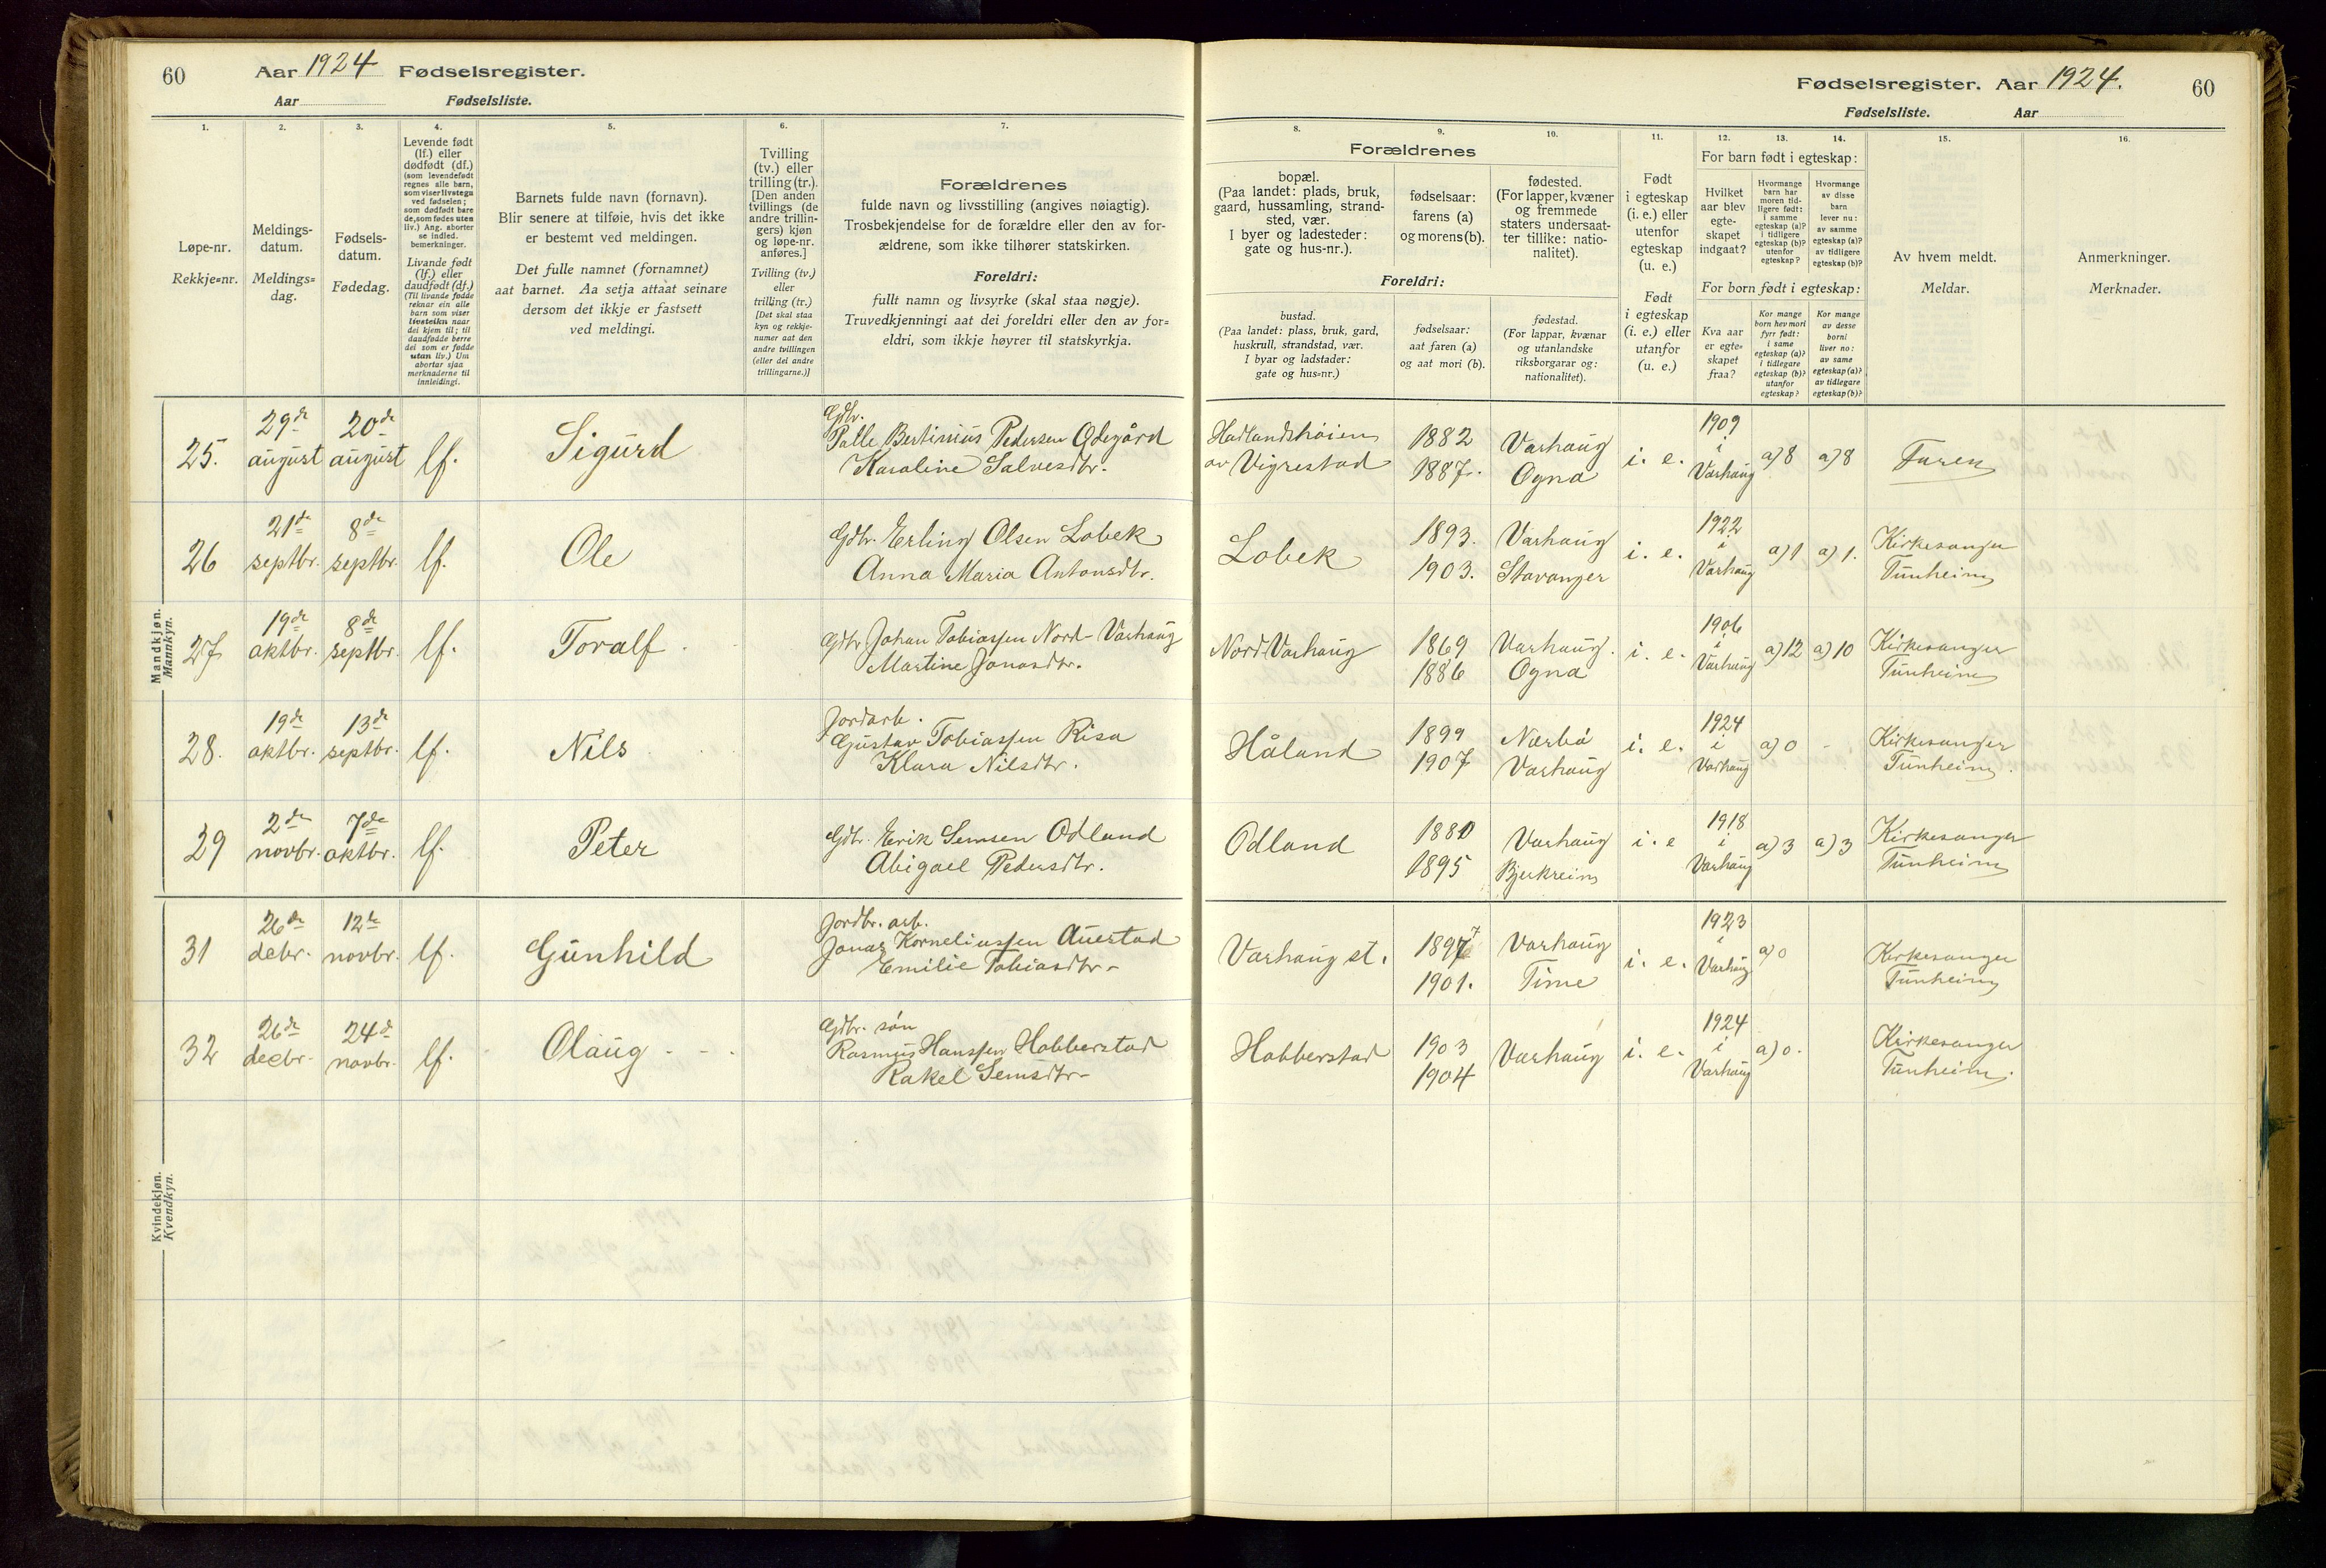 60 Aar 1924 Fødselsregister.
Aar Fødselsliste.
1. 2. 3. 4. 5. 6. 7.
Løpe-nr.
Rekkje=nr.
Meldings-
datum.
Meldings=
dag.
Fødsels-
datum.
Fødedag.
Levende født
(lf.) eller
dødfødt (df.)
(som levendefødt
regnes alle barn,
som viser livstegn
ved fødselen;
som dødfødt bare
de, som fødes uten
liv.) Ang. aborter
se indled.
bemerkninger.
Livande født
(lf.) eller
daudfødt (df.)
(Til livande fødde
reknar ein alle
barn som viser
livsteikn naar
dei kjem til; til
daudfødde berre
dei som er fødde
utan liv.) Um
abortar sjaa
merknaderne til
innleidingi.
Barnets fulde navn (fornavn).
Blir senere at tilføie, hvis det ikke
er bestemt ved meldingen.
Det fulle namnet (fornamnet)
aat barnet. Aa setja attaat seinare
dersom det ikkje er fastsett
ved meldingi.
Tvilling
(tv.) eller
trilling (tr.).
[Den anden
tvillings (de
andre trillin-
gers) kjøn
og løpe-nr.
anføres.]
Tvilling (tv.)
eller
trilling (tr.)
[Det skal staa
kyn og rekkje-
numer aat den
andre tvillingen
(eller dei andre
trillingarne.)]
Forældrenes
fulde navn og livsstilling (angives nøiagtig).
Trosbekjendelse for de forældre eller den av for-
ældrene, som ikke tilhører statskirken.
Foreldri:
fullt namn og livsyrke (skal staa nøgje).
Truvedkjenningi aat dei foreldri eller den av for=
eldri, som ikkje høyrer til statskyrkja.
Mandkjøn.
Mannkyn.
25. 29de august 20de august lf. Sigurd
Gdbr.
Palle Bertinius Pedersen Ødegård
Karoline Salvesdtr.
26 21de septbr. 8de septbr. lf. Ole
Gdbr. Erling Olsen Lobek
Anna Maria Antonsdtr.
27 19de oktbr. 8de septbr. lf. Toralf
Gdbr. Johan Tobiassen Nord-Varhaug
Martine Jonasdtr.
28. 19de oktbr. 13de septbr. lf. Nils
Jordarb.
Gustav Tobiassen Risa
Klara Nilsdtr.
29 2de novbr. 7de oktbr. lf. Peter
Gdbr. Erik Semsen Odland
Abigael Pedersdtr.
Kvindekjøn.
Kvendkyn.
31 26de debr. 12te novbr. lf. Gunhild
Jordbr. arb.
Jonas Korneliussen Auestad
Emilie Tobiasdtr.
32 26de decbr. 24de novbr. lf. Olaug
Gdbr. søn
Rasmus Hanssen Habberstad
Rakel Semsdtr.
Fødselsregister. Aar 1924. 60
Fødselsliste. Aar
8. 9. 10. 11. 12. 13. 14. 15. 16.
Forældrenes
bopæl.
(Paa landet: plads, bruk,
gaard, hussamling, strand-
sted, vær.
I byer og ladesteder:
gate og hus-nr.).
fødselsaar:
farens (a)
og morens (b).
fødested.
(For lapper, kvæner
og fremmede
staters undersaat-
ter tillike: natio-
nalitet).
Foreldri:
bustad.
(Paa landet: plass, bruk, gard,
huskrull, strandstad, vær.
I byar og ladstader:
gate og hus=nr.)
fødselsaar:
aat faren (a)
og aat mori (b).
fødestad.
(For lappar, kvænar
og utanlandske
riksborgarar og:
nationalitet).
Født
i egteskap
(i. e.) eller
utenfor
egteskap
(u. e.)
Født
i egteskap
(i. e.) eller
utanfor
(u. e.)
For barn født i egteskap:
Hvilket
aar blev
egte-
skapet
indgaat?
Hvormange
barn har
moren tid-
ligere født:
i samme
egteskap (a)?
i tidligere
egteskap (b)?
utenfor
egteskap?
Hvormange
av disse
barn
lever nu:
av samme
egteskap (a)?
av tidligere
egteskap (b)?
For born født i egteskap:
Kva aar
er egte=
skapet
fraa?
Kor mange
born hev mori
fyrr født:
i same
egteskap (a)?
i tidlegare
egteskap (b)?
utanfor
egteskap?
Kor mange
av desse
borni
liver no:
av same
egteskap (a)?
av tidlegare
egteskap (b)?
Av hvem meldt.
Meldar.
Anmerkninger.
Merknader.
Hadlandshøien
av Vigrestad
1882 Varhaug
1887. Ogna
i. e. 1909 i Varhaug a) 8 a) 8 Faren
Lobek
1893. Varhaug
1903. Stavanger
i. e. 1922 i Varhaug a) 1 a) 1. Kirkesanger Tunheim
Nord Varhaug
1869 Varhaug.
1886 Ogna
i. e. 1906 i Varhaug a) 12 a) 10 Kirkesanger Tunheim
Håland
1899 Nærbø
1907 Varhaug
i. e. 1924 i Varhaug a) 0 - Kirkesanger Tunheim.
Odland
1880 Varhaug
1895 Bjerkreim
i. e 1918 i Varhaug a) 3 a) 3 Kirkesanger Tunheim
Varhaug st.
1897 Varhaug
1901. Time
i. e. 1923 i Varhaug a) 0 Kirkesanger Tunheim
Habberstad
1903 Varhaug
1904
i. e. 1924 i Varhaug a) 0. Kirkesanger Tunheim.